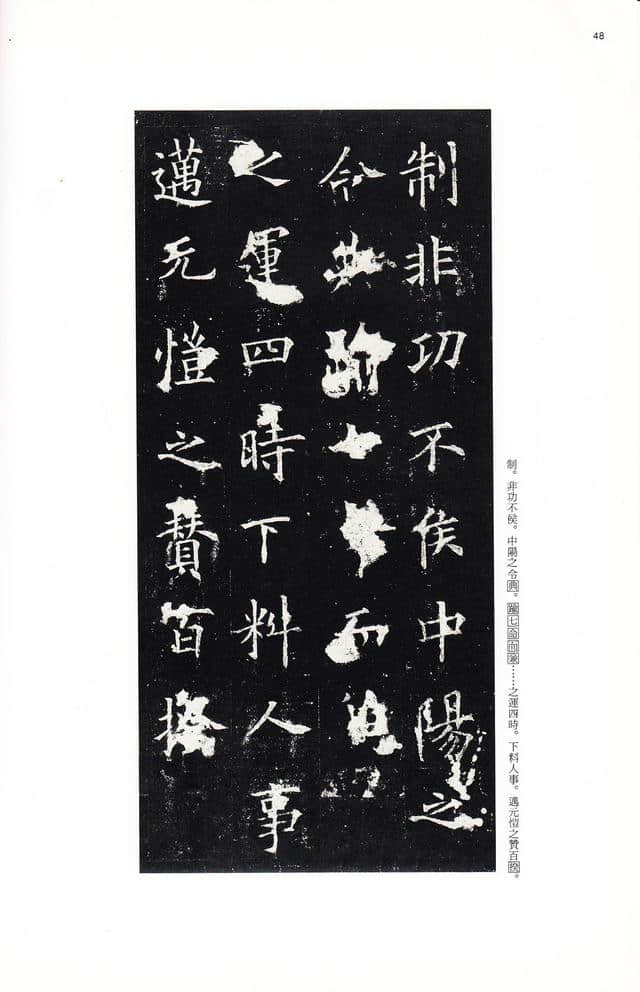 48
制非功不侯中陽之
令典踰七命而
之運四時下料人事
邁元愷之贊百揆
制。非功不侯。中陽之令典。踰七命而兼……之運四時。下料人事。邁元愷之贊百揆。